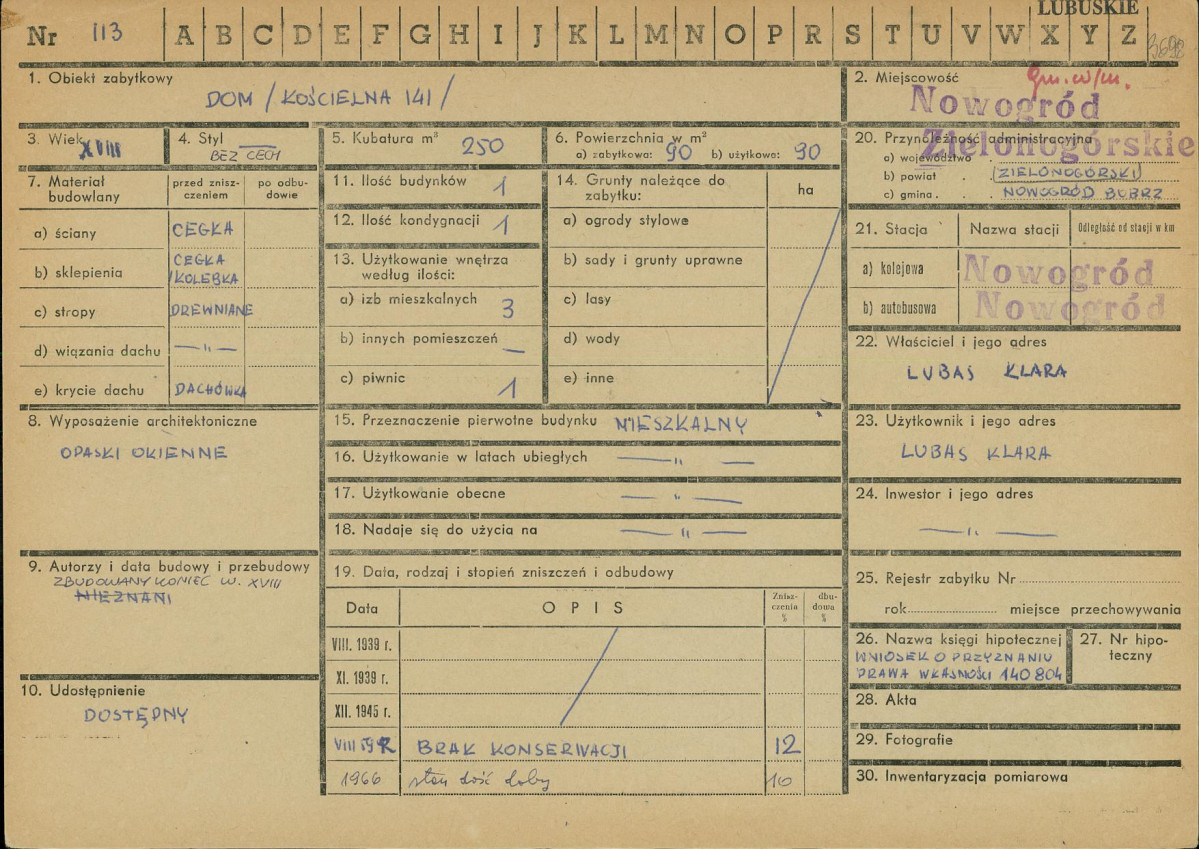 LUBUSKIE
Nr 113 A B C D E F G H I J K L M N O P R S T U V W X Y Z
3698
1. Obiekt zabytkowy
DOM / KOŚCIELNA 141 /
2. Miejscowość gm. w/m.
Nowogród
3. Wiek XVIII
4. Styl
BEZ CECH
5. Kubatura m³ 250
6. Powierzchnia w m²
a) zabytkowa: 90 b) użytkowa: 90
20. Przynależność administracyjna
Zielonogórskie
a) województwo
b) powiat (ZIELONOGÓRSKI)
c) gmina NOWOGRÓD BOBRZ
7. Materiał budowlany
przed zniszczeniem
po odbudowie
a) ściany CEGŁA
b) sklepienia CEGŁA
/KOLEBKA
c) stropy DREWNIANE
d) wiązania dachu —"—
e) krycie dachu DACHÓWKA
11. Ilość budynków 1
12. Ilość kondygnacji 1
13. Użytkowanie wnętrza
według ilości:
a) izb mieszkalnych 3
b) innych pomieszczeń —
c) piwnic 1
14. Grunty należące do
zabytku:
ha
a) ogrody stylowe
b) sady i grunty uprawne
c) lasy
d) wody
e) inne
21. Stacja
Nazwa stacji
Odległość od stacji w km
a) kolejowa Nowogród
b) autobusowa Nowogród
22. Właściciel i jego adres
LUBAS KLARA
8. Wyposażenie architektoniczne
OPASKI OKIENNE
15. Przeznaczenie pierwotne budynku MIESZKALNY
16. Użytkowanie w latach ubiegłych —"—
17. Użytkowanie obecne —"—
18. Nadaje się do użycia na —"—
23. Użytkownik i jego adres
LUBAS KLARA
24. Inwestor i jego adres
—"—
9. Autorzy i data budowy i przebudowy
ZBUDOWANY KONIEC W. XVIII
NIEZNANI
10. Udostępnienie
DOSTĘPNY
19. Data, rodzaj i stopień zniszczeń i odbudowy
Data
OPIS
Zniszczenia %
dbudowa %
VIII. 1939 r.
XI. 1939 r.
XII. 1945 r.
BRAK KONSERWACJI 12
1966 stan dość dobry 10
25. Rejestr zabytku Nr
rok miejsce przechowywania
26. Nazwa księgi hipotecznej
WNIOSEK O PRZYZNANIU
PRAWA WŁASNOŚCI 140804
27. Nr hipoteczny
28. Akta
29. Fotografie
30. Inwentaryzacja pomiarowa